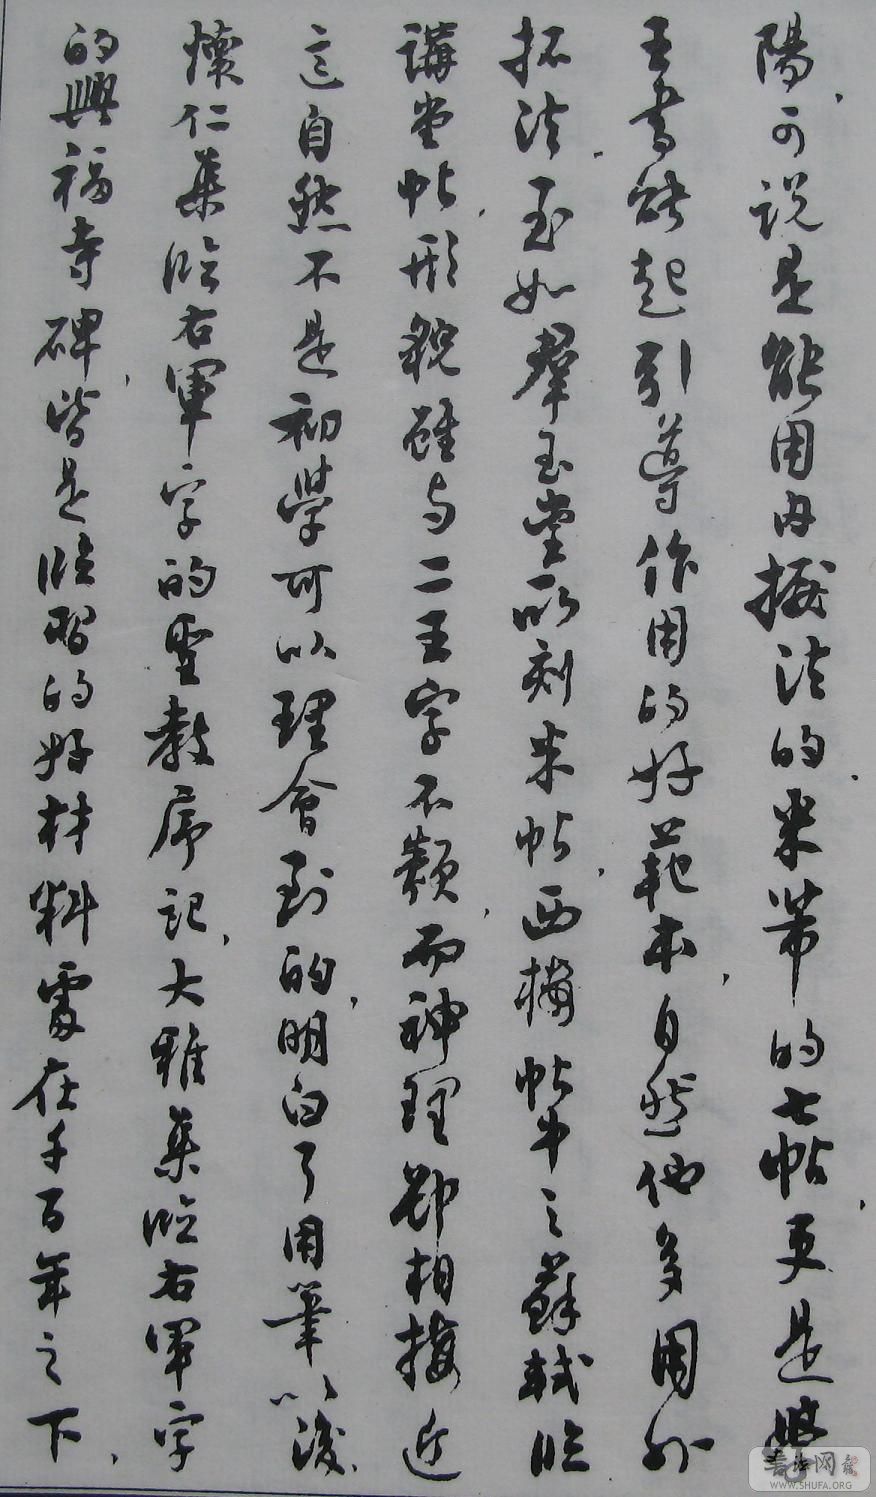 陽，可說是能用內擫法的，米芾的七帖，更是
王書能起引導作用的好範本，自然他多用外
拓法，至如羣玉堂所刻米帖，西樓帖中之蘇軾臨
講堂帖，形貌雖與二王字不類，而神理卻相接近
這自然不是初學可以理會到的，明白了用筆以後
懷仁集臨右軍字的聖教序記，大雅集臨右軍字
的興福寺碑，皆是臨習的好材料處在千百年之下，
書法网
WWW.SHUFA.ORG